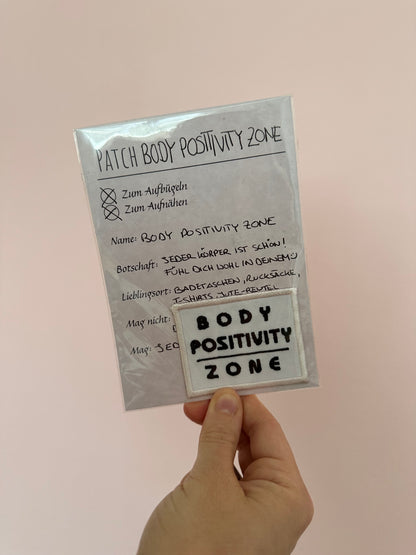 PATCH BODY POSITIVITY ZONE
Zum Aufbügeln
Zum Aufnähen
Name: BODY POSITIVITY ZONE
Botschaft: JEDER KÖRPER IST SCHÖN!
FÜHL DICH WOHL IN DEINEM
Lieblingsort: BADETASCHEN, RUCKSÄCKE,
T-SHIRTS, JUTE-BEUTEL
Mag nicht:
Mag:
BODY
POSITIVITY
ZONE